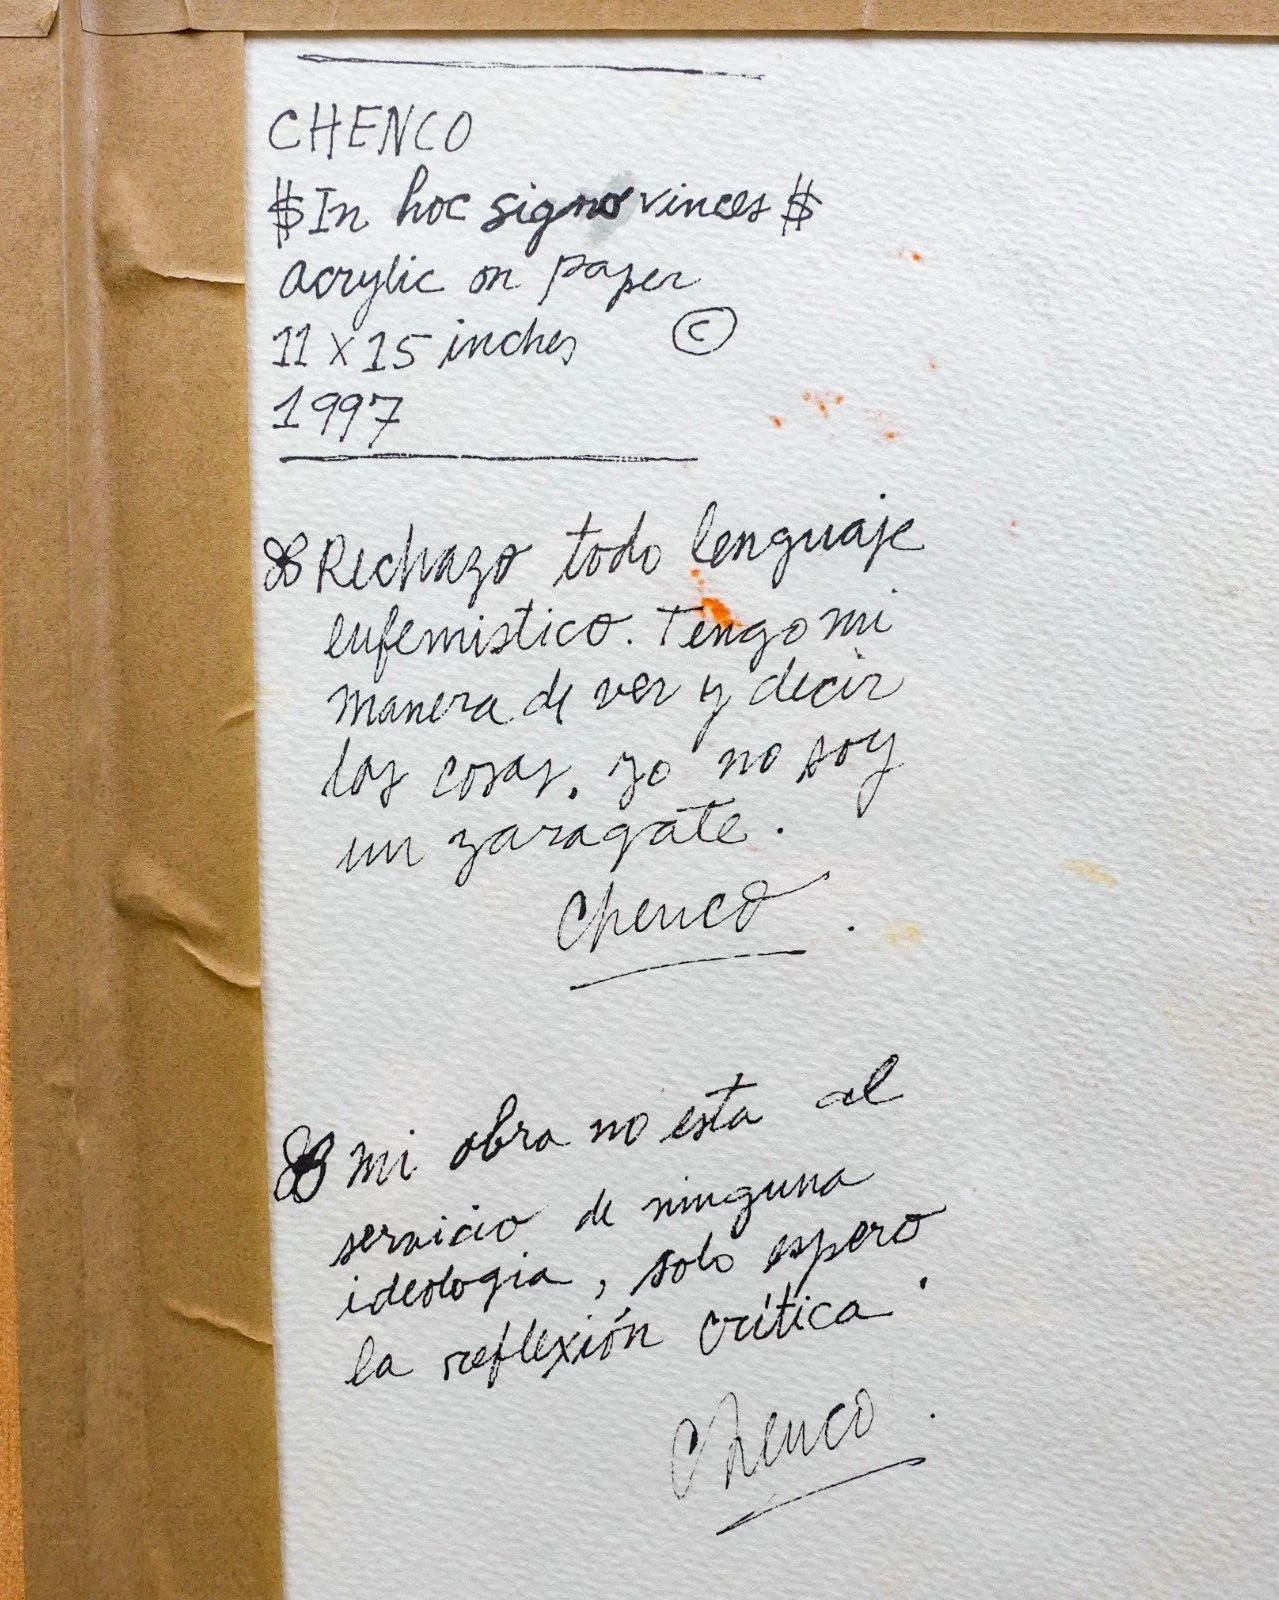 CHENCO
$ In hoc signo vinces $
acrylic on paper
11 x 15 inches ©
1997
Rechazo todo lenguaje
eufemistico. Tengo mi
manera de ver y decir
las cosas. yo no soy
un zaragate.
Chenco.
Mi obra no esta al
servicio de ninguna
ideologia, solo espero
la reflexión crítica.
Chenco.